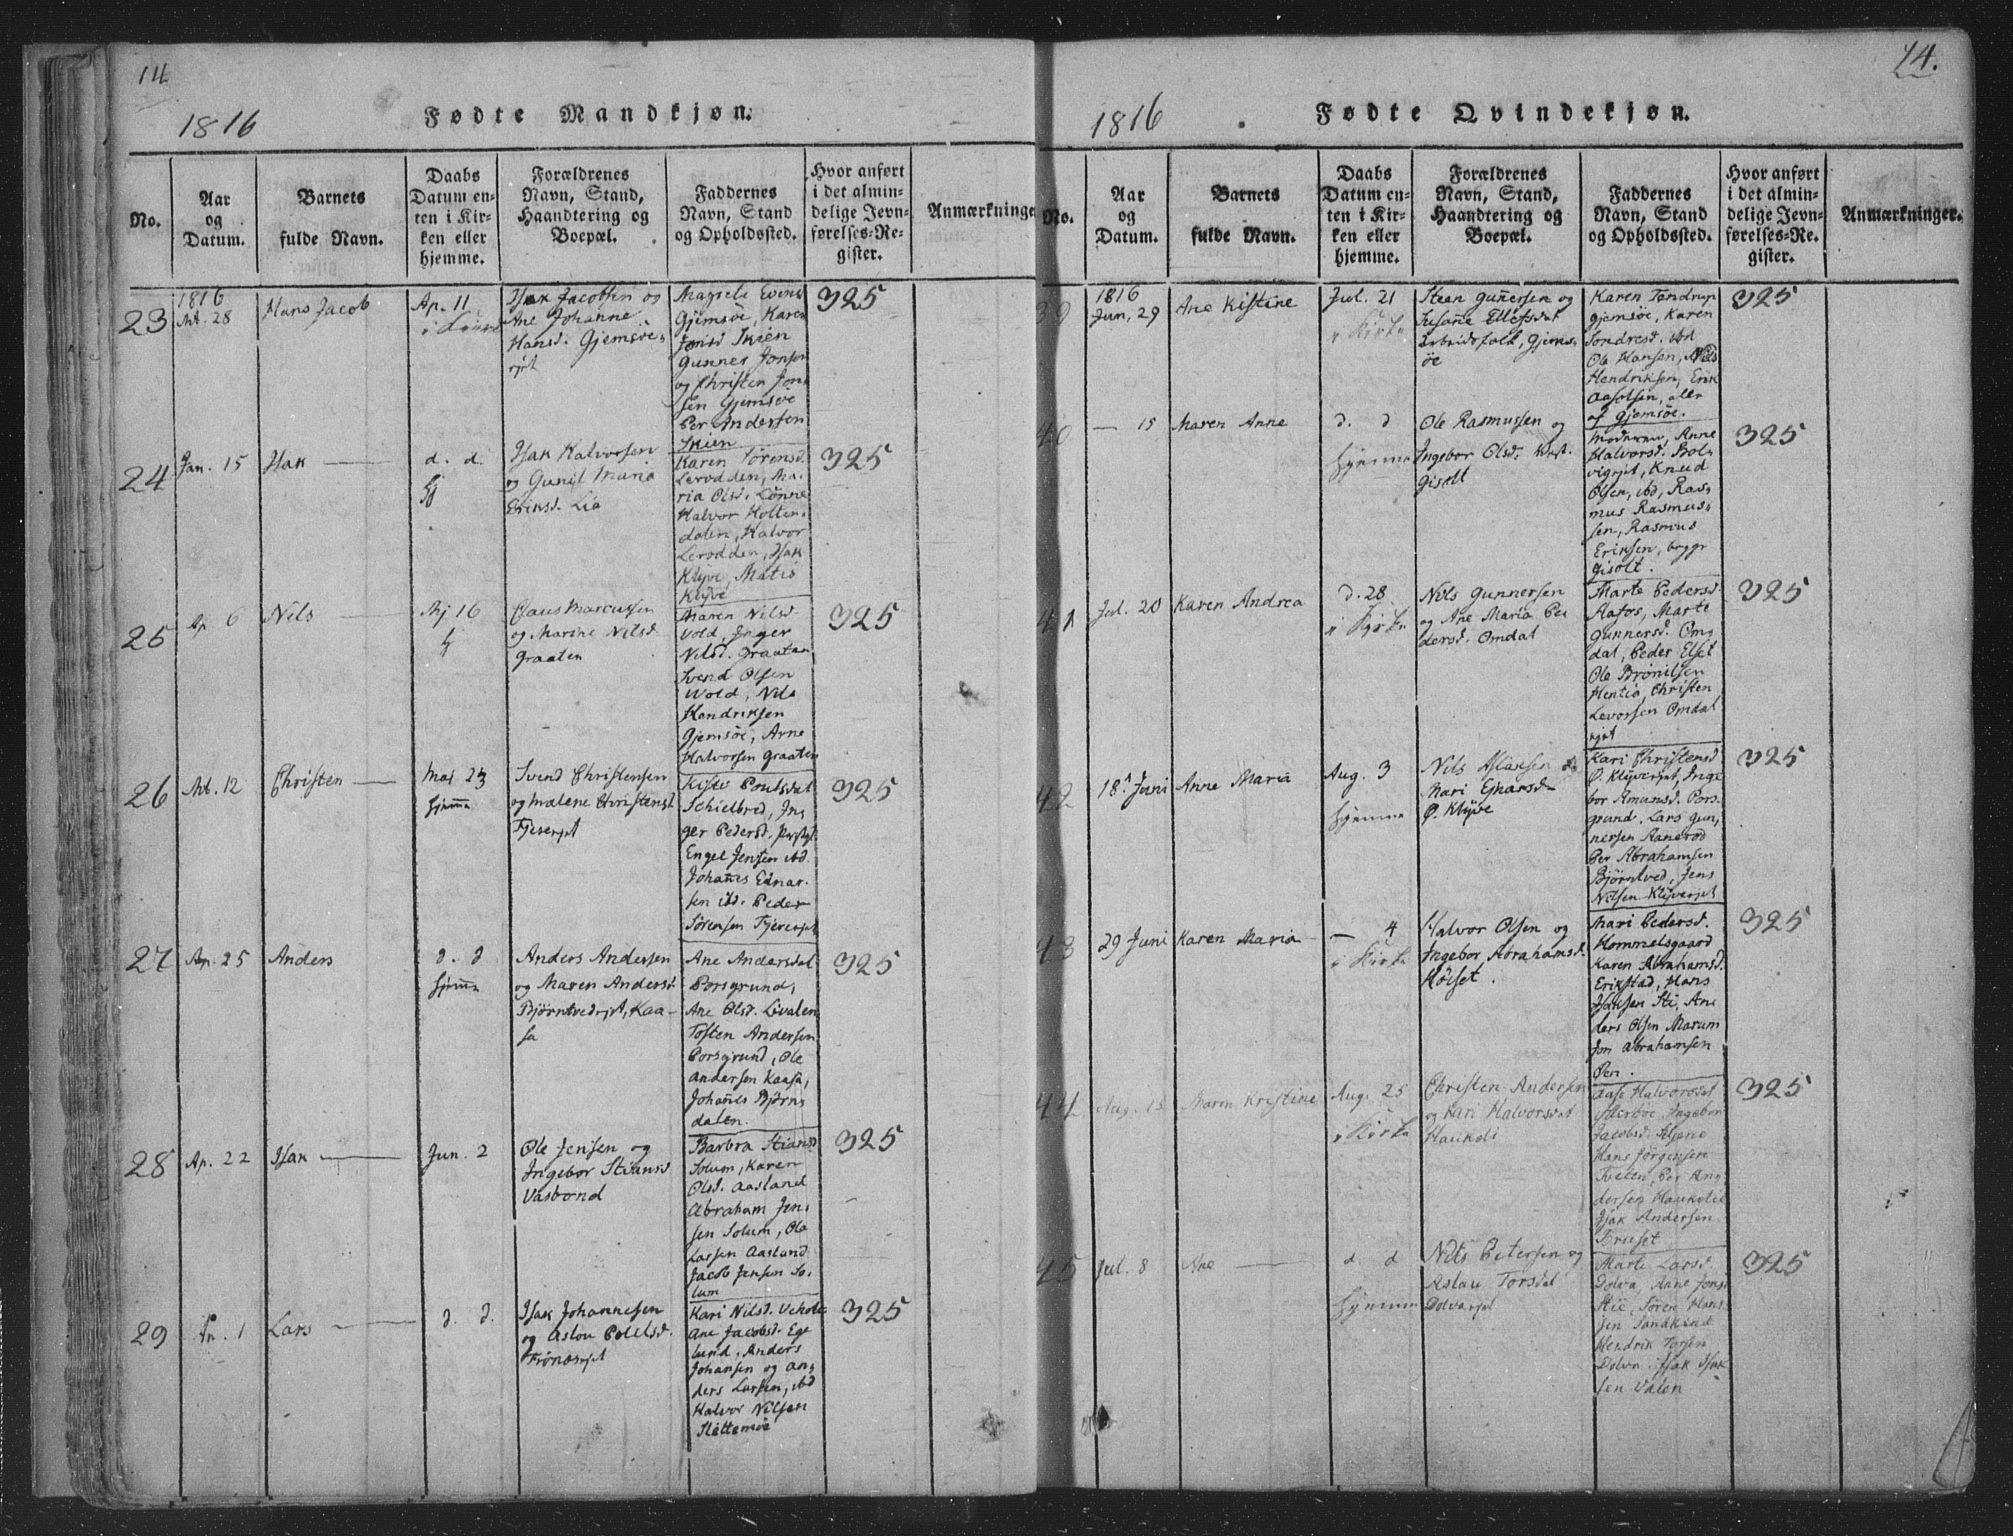 14
1816
Fødte Mandkjøn.
No.
Aar
og
Datum.
Barnets
fulde Navn.
Daabs
Datum en-
ten i Kir-
ken eller
hjemme.
Forældrenes
Navn, Stand,
Haandtering og
Boepæl.
Faddernes
Navn, Stand
og Opholdssted.
Hvor anført
i det almin-
delige Jevn-
førelses-Re-
gister.
Anmærkninge
23
1816
28
Hans Jacob
Ap. 11
Isak Jacobsen og
Ane Johanne
Hansd. Gjemsøe-
ejet
Gjemsøe, Karen
Jonsd Skien
Gunner Jonsen
og Christen Jon-
sen Gjemsøe
Per Andersen
Skien
325
24
Jan. 15
Isak
d. d.
Isak Halvorsen
og Gunil Maria
Eriksd. Lia
Karen Sørensd.
Lerodden, Ma-
ria Olsd. Lønne
Halvor Holten-
dalen, Halvor
Lerodden, Isak
Klyve, Matis
Klyve
325
25
Ap 6
Nils
Mj 16
Claus Marcussen
og Marine Nilsd.
Graaten
Maren Nilsd
Vold, Inger
Nilsd. Graaten
Svend Olsen
Wold, Nils
Hendriksen
Gjemsøe, Arne
Halvorsen Graaten
325
26
12
Christen
Maj 23
hjemme
Svend Christensen
og Malene Christensd
Fjereejet
Kisti Poulsdat
Schielbred, In-
ger Pedersd.
Engel Jensen ibd.
Johanes Ednar-
sen ibd. Peder
Sørensen Fjereejet
325
27
Ap. 25
Anders
d. d
hjemme
Anders Andersen
og Maren Andersd.
Bjørntvedejet, Kaa-
sa
Ane Andersdat
Porsgrund,
Ane Olsd. Livalen
Tosten Andersen
Porsgrund, Ole
Andersen Kaasa,
Johanes Bjørn-
dalen.
325
28
Ap. 22
Isak
Jun. 2
Ole Jensen og
Ingebor Stiansd
Vasbond
Barbra Stiansd
Solum, Karen
Olsd. Aasland
Abraham Jen-
sen Solum, Ole
Larsen Aasland
Jacob Jensen So-
lum
325
29
1
Lars
d. d.
Isak Johannesen
og Aslou Polelsd.
Frøneejet
Kari Nilsd.
Ane Jacobsd. Ege
lund, Anders
Johansen og An-
ders Larsen, ibd
Halvor Nilsen
Slettemøe
325
14.
1816
Fødte Qvindekjøn.
No.
Aar
og
Datum.
Barnets
fulde Navn.
Daabs
Datum en-
ten i Kir-
ken eller
hjemme.
Forældrenes
Navn, Stand,
Haandtering og
Boepæl.
Faddernes
Navn, Stand
og Opholdssted.
Hvor anført
i det almin-
delige Jevn-
førelses-Re-
gister.
Anmærkninger.
39
1816
Jun, 29
Ane Kistine
Jul. 21
i Kirke
Steen Gunnersen og
Susane Ellefsdat
Arbeidsfolk, Gjems-
øe
Karen Tandrup
Gjemsøe, Karen
Sondresd. ibd
Ole Hansen, Nils
Hendriksen, Erik
Aasolsen, alle
af Gjemsøe.
325
40
— 15
Maren Anne
d. d
hjemme
Ole Rasmussen og
Ingebor Olsd.
Gisolt
Moderen, Anne
Halvorsd. Bol-
vigejet, Knud
Olsen, ibd, Ras-
mus Rasmus-
sen, Rasmus
Eriksen, begge
Gisolt.
325
41
Jul. 20
Karen Andrea
d. 28
i Kirke
Nils Gunnersen
og Ane Maria Pe
dersd. Omdal
Marte Pedersd
Rafos, Marte
Gunnersd. Om-
dal, Peder Elset
Ole Brønilsen
Mentia, Christen
Levorsen Omdal
ejet
325
42
18. Juni
Anne Maria
Aug. 3
hjemme
Nils Aslaksen og
Mari Ejnarsd
Ø. Klyve
Kari Christensd
Ø. Klyveejet, Inge
bor Amunsd. Pors-
grund, Lars Gun-
nersen Aanerød
Per Abrahamsen
Bjørntved, Jens
Nilsen Klyveejet
325
43
29 Juni
Karen Maria
— 4
i Kirke
Halvor Olsen og
Ingebor Abrahamsd.
Kølset.
Mari Pedersd.
Hommelsgaard
Karen Abrahamsd.
Erikstad, Hans
Isaksen Sti, An-
ders Olsen Marum
Jon Abrahamsen
Øen.
325
44
Aug. 15
Maren Kristine
Aug. 25
i Kirke
Christen Andersen
og Kari Halvorsdat
Haukeli
Aase Halvorsdat
Ingebor
Jacobsd.
Hans Jørgensen
Tveten, Per An-
dersen Haukelie
Isak Andersen
Truset
325
45
Jul. 8
Ane
d d
hjemme
Nils Petersen og
Aslau Torsdat
Dolvaejet
Marte Larsd.
Dolva, Aane Jons-
Stie, Søren Hans-
sen Sandkind
Hendrik Torsen
Dolva, Isak Isak
sen Valen
325